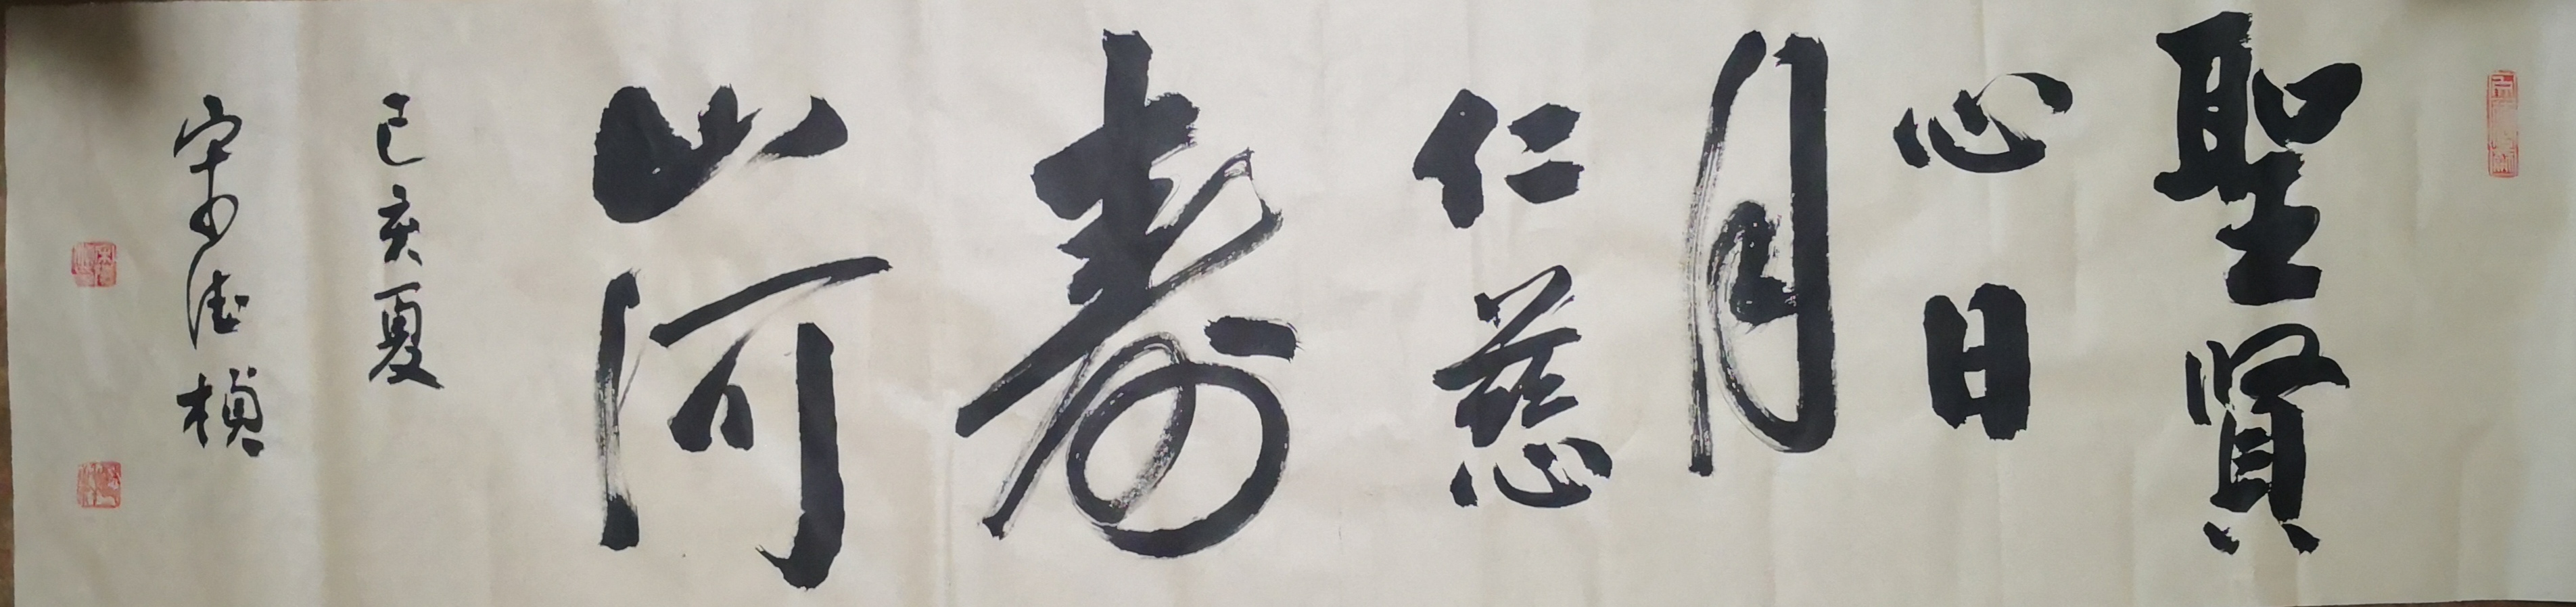 聖賢
心日
月
仁慈
壽
山河
己亥夏
宋德楨